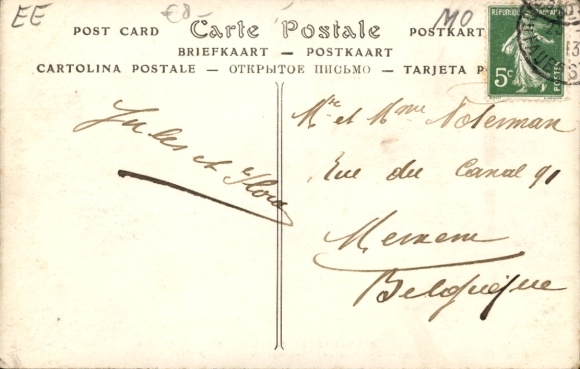 EE
€8-
MO
POST CARD
Carte Postale
POSTKART
BRIEFKAART — POSTKAART
CARTOLINA POSTALE — ОТКРЫТОЕ ПИСЬМО — TARJETA P
REPUBLIQUE FRANÇAISE
5c
POSTES
Jules et Flora
Mr et Mme Noterman
Rue du Canal 91
Menem
Belgique